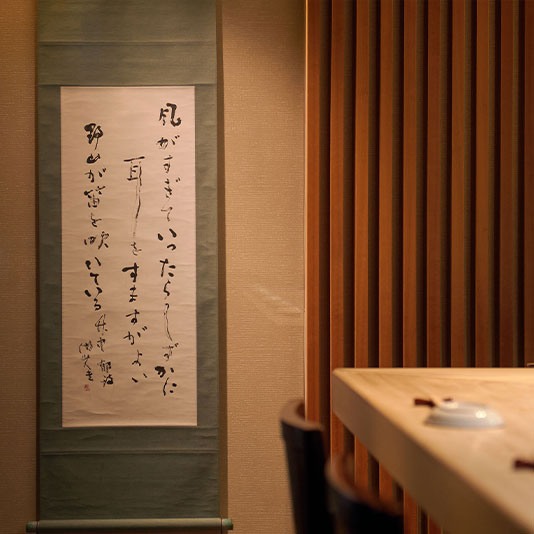 風がすぎていったらしずかに
耳をすますがよい
野山が笛を吹いている